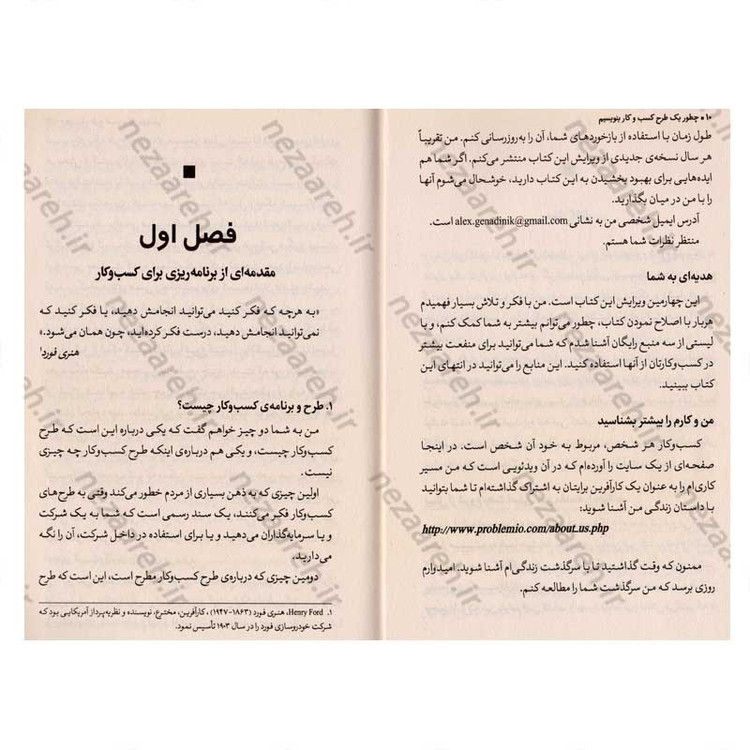 ۱۰ • چطور یک طرح کسب و کار بنویسیم
طول زمان با استفاده از بازخوردهای شما، آن را به‌روزرسانی کنم. من تقریباً
هر سال نسخه‌ی جدیدی از ویرایش این کتاب منتشر می‌کنم. اگر شما هم
ایده‌هایی برای بهبود بخشیدن به این کتاب دارید، خوشحال می‌شوم آنها
را با من در میان بگذارید.
آدرس ایمیل شخصی من به نشانی alex.genadinik@gmail.com است.
منتظر نظرات شما هستم.
هدیه‌ای به شما
این چهارمین ویرایش این کتاب است. من با فکر و تلاش بسیار فهمیدم
هربار با اصلاح نمودن کتاب، چطور می‌توانم بیشتر به شما کمک کنم، و با
لیستی از سه منبع رایگان آشنا شدم که شما می‌توانید برای منفعت بیشتر
در کسب‌وکارتان از آنها استفاده کنید. این منابع را می‌توانید در انتهای این
کتاب ببینید.
من و کارم را بیشتر بشناسید
کسب‌وکار هر شخص، مربوط به خود آن شخص است. در اینجا
صفحه‌ای از یک سایت را آورده‌ام که در آن ویدئویی است که من مسیر
کاری‌ام را به عنوان یک کارآفرین برایتان به اشتراک گذاشته‌ام تا شما بتوانید
با داستان زندگی من آشنا شوید:
http://www.problemio.com/about_us.php
ممنون که وقت گذاشتید تا با سرگذشت زندگی‌ام آشنا شوید. امیدوارم
روزی برسد که من سرگذشت شما را مطالعه کنم.
فصل اول
مقدمه‌ای از برنامه‌ریزی برای کسب‌وکار
«به هرچه که فکر کنید می‌توانید انجامش دهید، یا فکر کنید که
نمی‌توانید انجامش دهید، درست فکر کرده‌اید، چون همان می‌شود.»
هنری فورد۱
۱. طرح و برنامه‌ی کسب‌وکار چیست؟
من به شما دو چیز خواهم گفت که یکی درباره این است که طرح
کسب‌وکار چیست، و یکی هم درباره‌ی اینکه طرح کسب‌وکار چه چیزی
نیست.
اولین چیزی که به ذهن بسیاری از مردم خطور می‌کند وقتی به طرح‌های
کسب‌وکار فکر می‌کنند، یک سند رسمی است که شما به یک شرکت
و یا سرمایه‌گذاران می‌دهید و یا برای استفاده در داخل شرکت، آن را نگه
می‌دارید.
دومین چیزی که درباره‌ی طرح کسب‌وکار مطرح است، این است که طرح
۱. Henry Ford، هنری فورد (۱۸۶۳-۱۹۴۷)، کارآفرین، مخترع، نویسنده و نظریه‌پرداز آمریکایی بود که
شرکت خودروسازی فورد را در سال ۱۹۰۳ تأسیس نمود.
nezaareh.ir